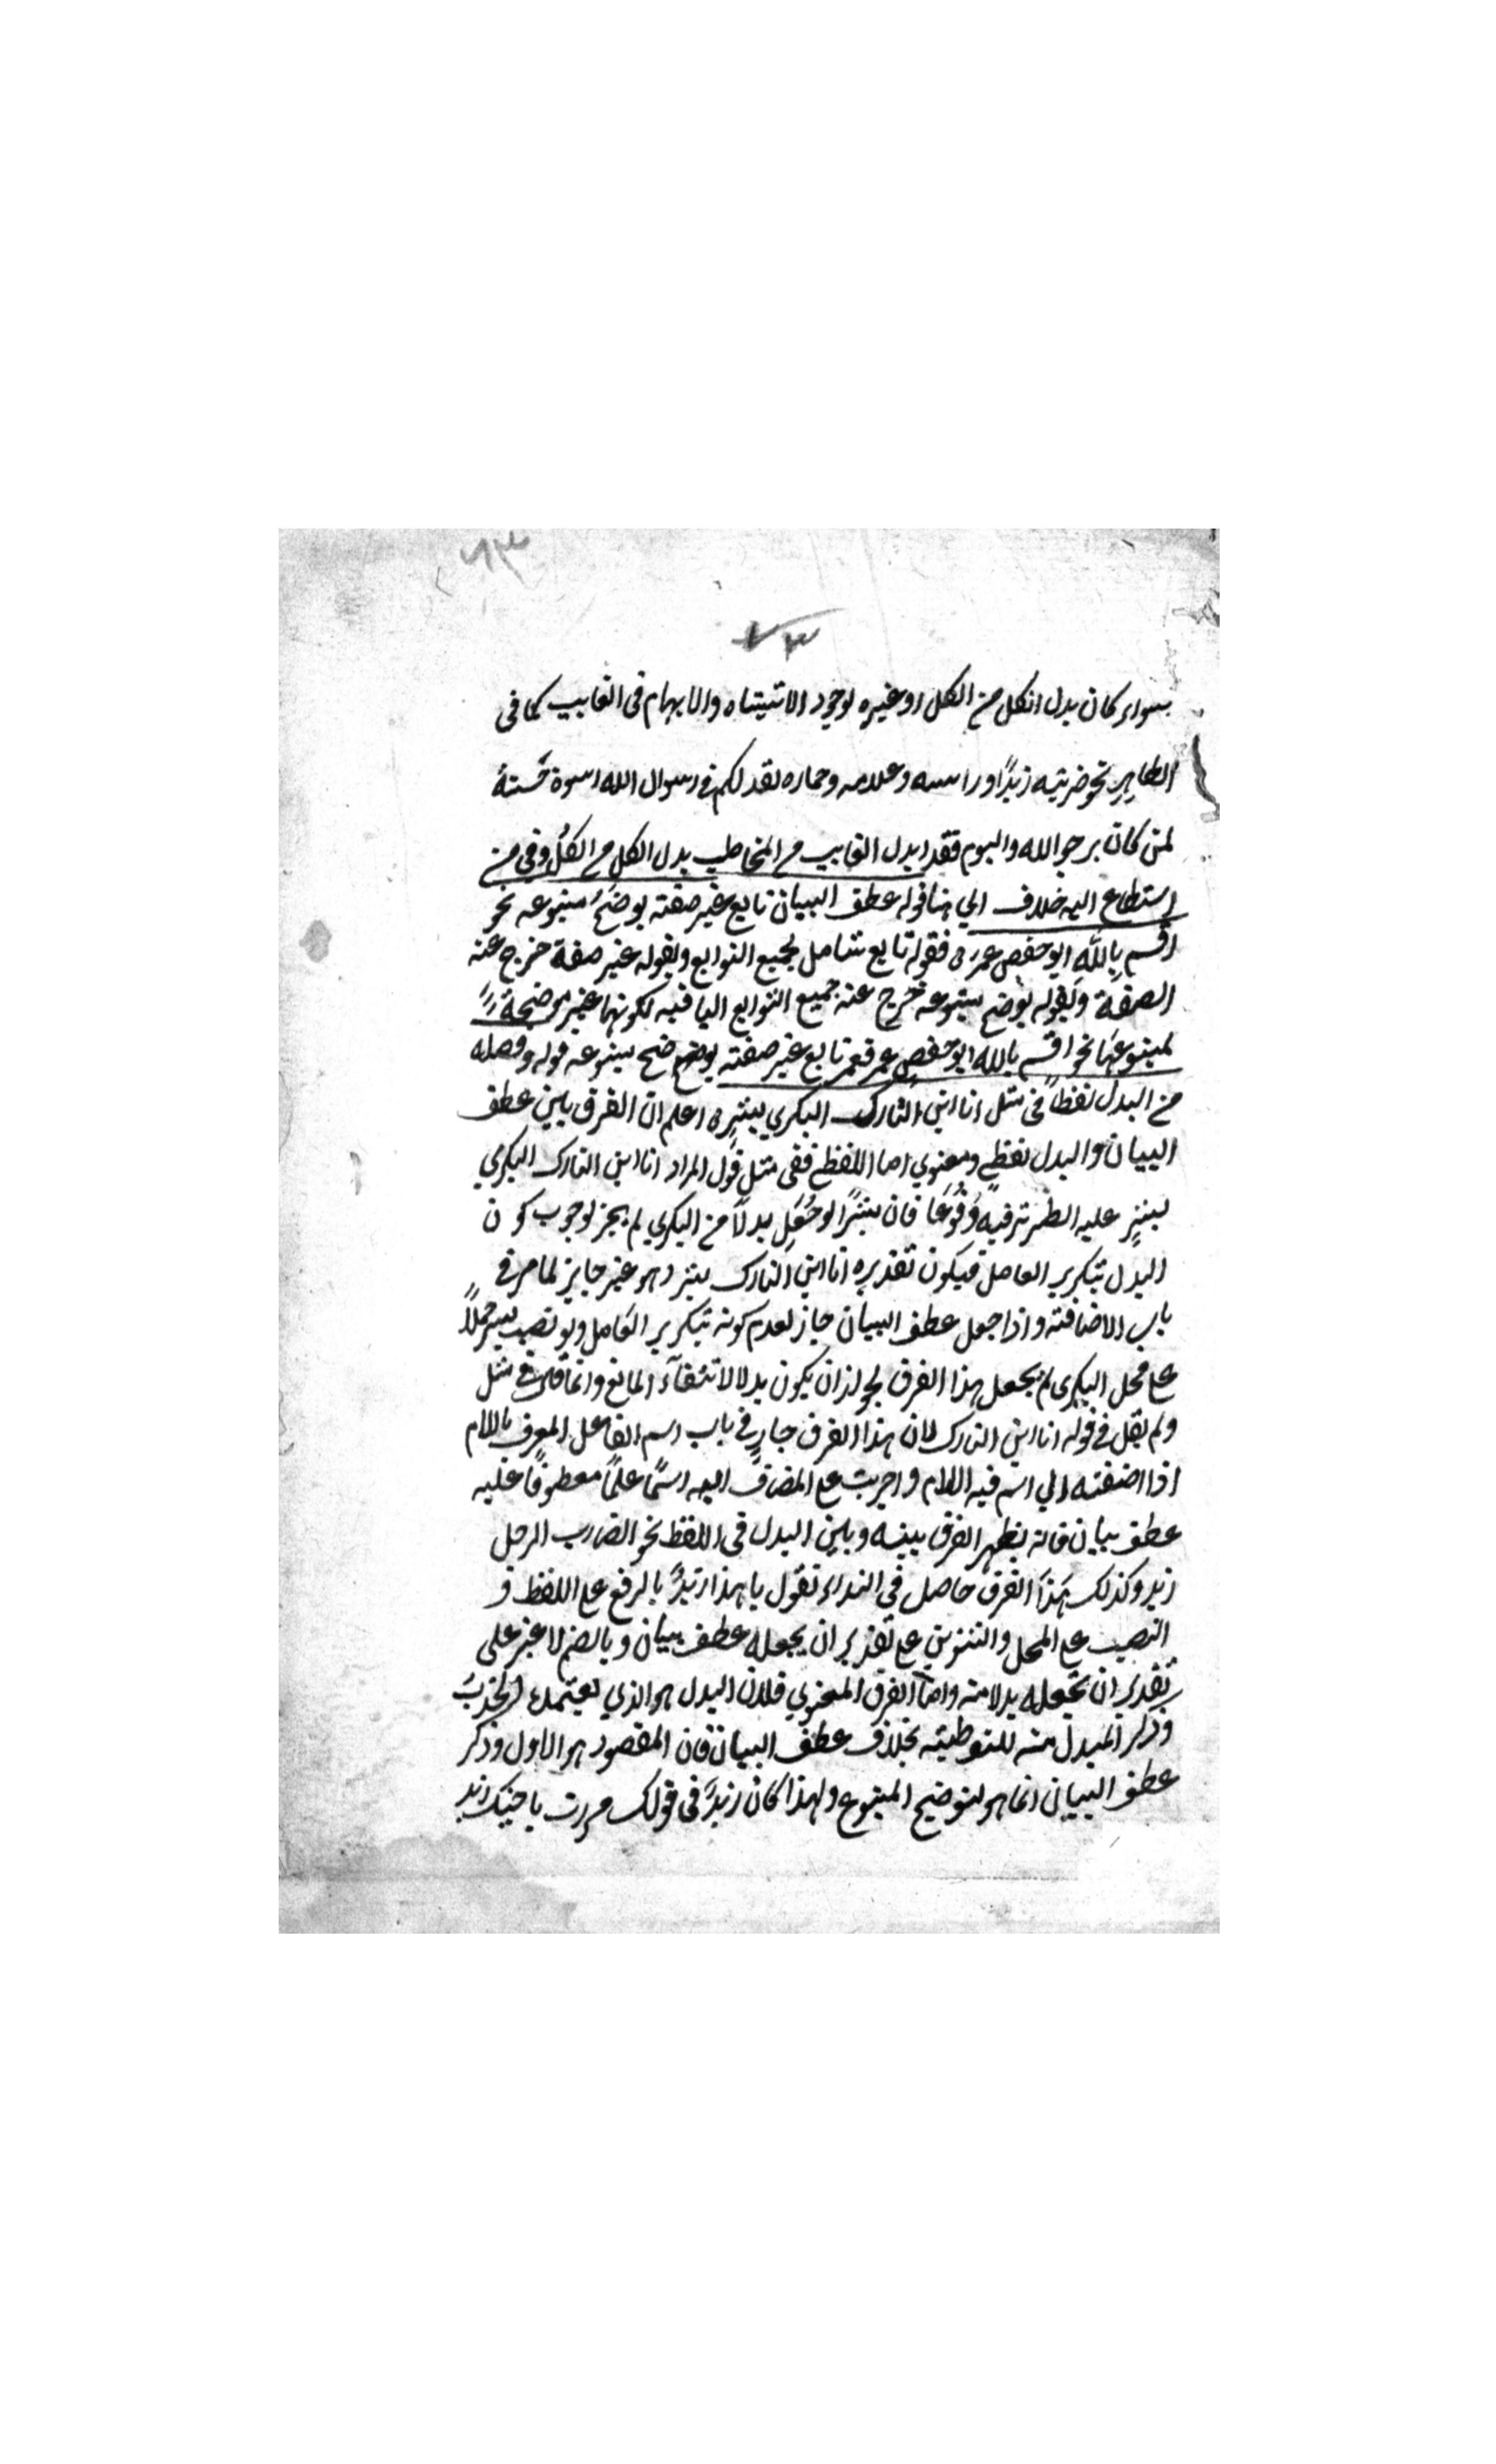 ٧٣
سواء كان بدل الكل من الكل او غيره لوجود الاشتباه والابهام فى الغايب كما فى
الظاهر نحو ضربته زيدًا وراسه وغلامه وحماره لقد لكم في رسول الله اسوة حسنةٌ
لمن كان يرجو الله واليوم فقد ابدل الغايب من المخاطب بدل الكل من الكل وفي من
استطاع اليه خلاف الي هنا قوله عطف البيان تابع غير صفته يوضحُ متبوعه نحو
اقسم بِاللّهِ ابو حفص عمر فقوله تابع شامل لجميع التوابع وبقوله غير صفة خرج عنه
الصفة وبقوله يوضح متبوعه خرج عنه جميع التوابع الباقيه لكونها غير موضحة
لمتبوعها نحو اقسم بالله ابو حفص عمر فعمر تابع غير صفته يوضح ضح متبوعه قوله وفصله
من البدل لفظًا في مثل انا ابن التارك البكري بشرٍ اعلم ان الفرق بين عطف
البيان والبدل لفظي ومعنوي اما اللفظي ففى مثل قول المراد انا ابن التارك البكري
بشرٍ عليه الطير ترقبه وُقُوعًا فان بشرًا لو جُعِل بدلًا من البكري لم يجز لوجوب كون
البدل بتكرير العامل فيكون تقديره انا ابن التارك بشر وهو غير جايز لما مر في
باب الاضافته واذا جعل عطف البيان جاز لعدم كونه بتكرير العامل ولو نصب بشر حملاً
على محل البكرى لم يحصل هذا الفرق لجواز ان يكون بدلا لانتفآء المانع وانما قال في مثل
ولم يقل في قوله انا ابن التارك لان هذا الفرق جارٍ في باب اسم الفاعل المعرف باللام
اذا اضفته الي اسم فيه اللام واجريت على المضاف اليه اسمًا علمًا معطوفًا عليه
عطف بيان فانه يظهر الفرق بينه وبين البدل فى اللفظ نحو الضارب الرجل
زيد وكذلك هَذا الفرق حاصل في النداء تقول يا هذا زيدٌ بالرفع على اللفظ و
النصب على المحل والتنوين على تقدير ان يجعله عطف بيان وبالضم لا غير على
تقدير ان تجعله بدلا منه واما الفرق المعنوي فلان البدل هو الذي يعتمده
وذكر المبدل منه للتوطيته بخلاف عطف البيان فان المقصود هو الاول وذكر
عطف البيان انما هو لتوضيح المتبوع ولهذا كان زيدٌ فى قولك مررت باخيك زيد